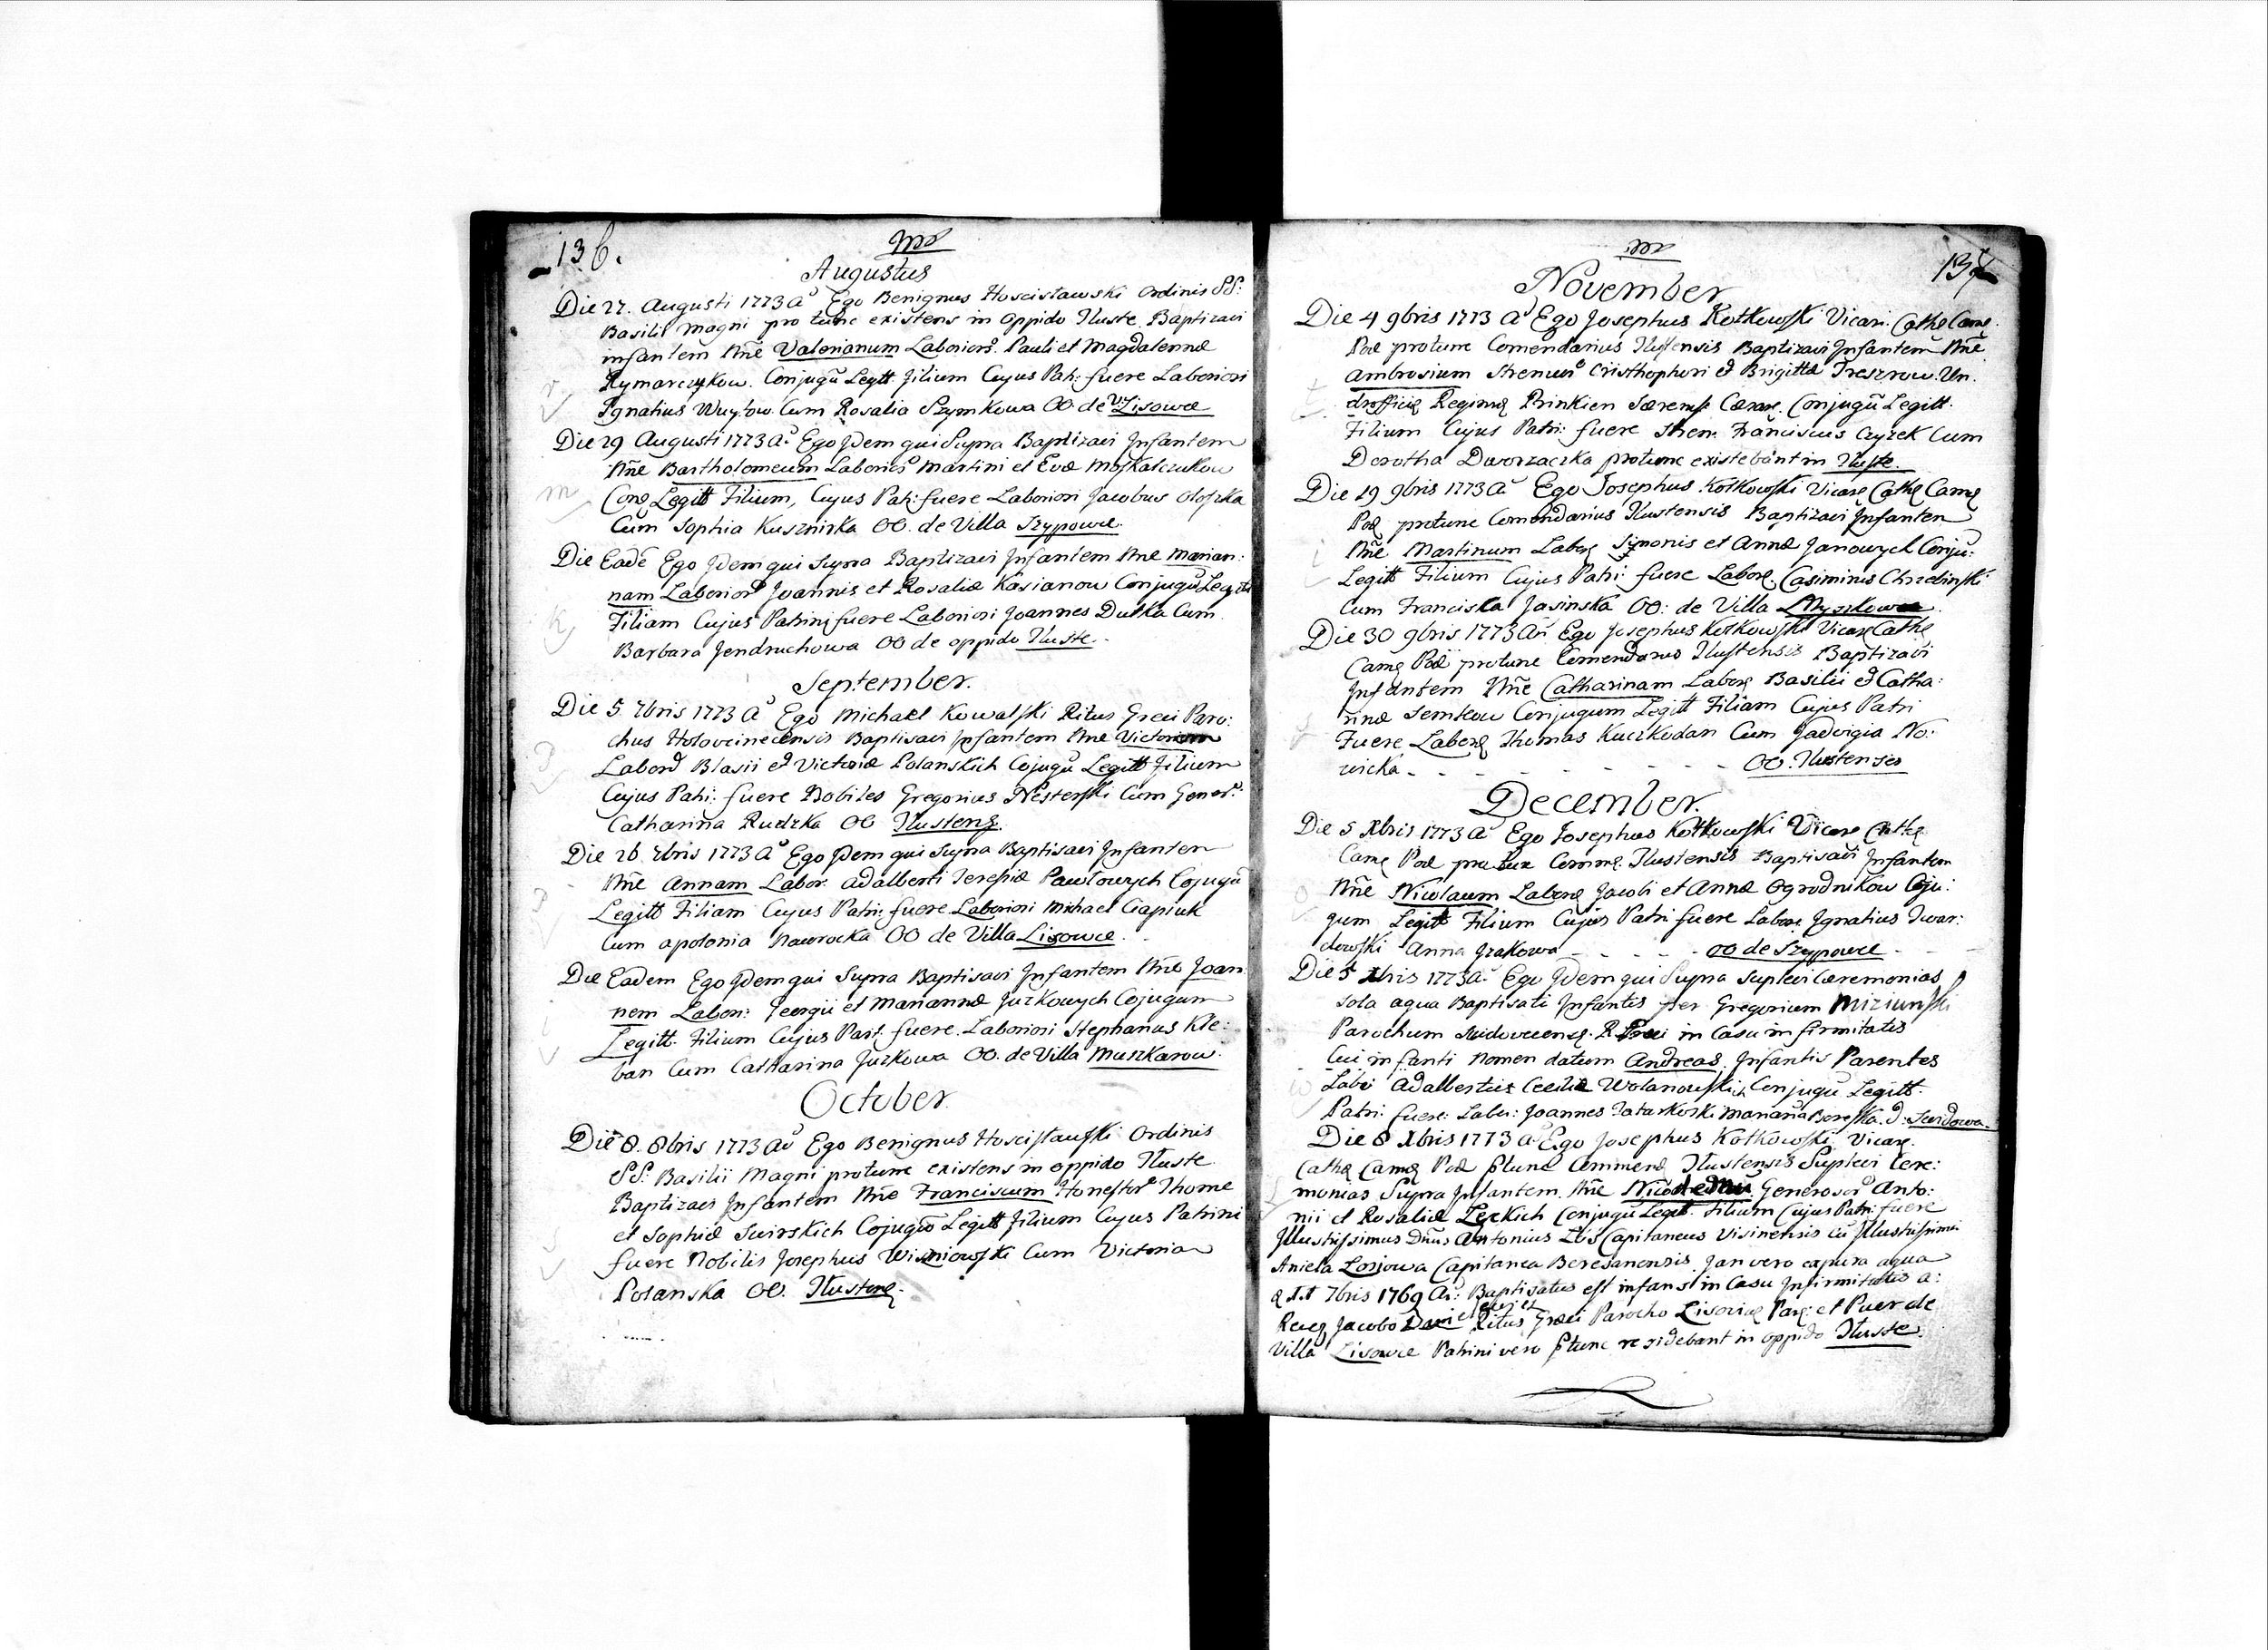 136.
Augustus
Die 27. Augusti 1773 a Ego Benignus Hoscisławski Ordinis SS:
Basilii Magni pro tunc existens in Oppido Tłuste Baptizavi
infantem Nñe Valerianum Laborios. Pauli et Magdalennæ
Rymarczykow. Conjugũ Legitt. Filium Cujus Patr: fuere Laboriosi
Ignatius Wuytow Cum Rosalia Szymkowa OO. de V: Lisowce
Die 29 Augusti 1773 a. Ego Idem qui Supra Baptizavi Infantem
Nñe Bartholomeum Laborios Martini et Evæ Moskalczukow
Conę Legitt Filium, Cujus Patr: fuere Laboriosi Jacobus
Cum Sophia Kusznirka OO. de Villa Szypowce.
Die Eadẽ Ego Idem qui Supra Baptizavi Infantem Nñe Marian:
nam Laborios Joannis et Rosaliæ Kasianow Conjugũ Legitt
Filiam Cujus Patrini fuere Laboriosi Joannes Dutka Cum
Barbara Jendruchowa OO de oppido Tłuste.
September.
Die 5 7bris 1773 a Ego Michael Kowalski Ritus Greci Paro:
chus Baptisavi Infantem Nñe
Labor Blasii et Victoriæ Polanskich Cojugũ Legitt Filium
Cujus Patri: fuere Nobiles Gregorius Nesterski Cum Gener:
Catharina Rudzka OO Tłustenę.
Die 26. 7bris 1773 a Ego Idem qui Supra Baptisavi Infantem
Nñe Annam Labor: Adalberti Teresiæ Pawłowych Cojugũ
Legitt Filiam Cujus Patri: fuere Laboriosi Michael Ciapiuk
Cum Apolonia Nawrocka OO de Villa Lisowce.
Die Eadem Ego Idem qui Supra Baptisavi Infantem Nñe Joan
nem Labori: Georgii et Mariannæ Juzkowych Cojugum
Legitt. Filium Cujus Patr: fuere Laboriosi Stephanus Kle:
ban Cum Catharina Juzkowa OO. de Villa Muszkarow.
October
Die 8. 8bris 1773 a Ego Benignus Hoscisławski Ordinis
SS: Basilii Magni protunc existens in oppido Tłuste
Baptizavi Infantem Nñe Franciscum Honestor Thome
et Sophiæ Swirskich Cojugũ Legitt Filium Cujus Patrini
fuere Nobilis Josephus Wisniowski Cum Victoria
Polanska OO. Tłustenę.
137
November
Die 4 9bris 1773 a Ego Josephus Kotkowski Vicari: Cathę Camę.
Podæ protunc Comendarius Tłustensis Baptizavi Infantem Nñe
Ambrosium Strenuo Cristhophori et Brigittæ Treszrow. Un.
drofficię Regimę Prinkien Conjugũ Legitt.
Filium Cujus Patri: fuere Stren: Franciscus Czyzek Cum
Dorotha Dworzaczka protunc existebant in Tłuste.
Die 19 9bris 1773 a Ego Josephus Kotkowski Vicarę Cathę Camę
Podæ protunc Comendarius Tłustensis Baptizavi Infantem
Nñe Martinum Laborę Symonis et Annæ Janowych Conju:
Legitt Filium Cujus Patri: fuere Laborę. Casimirus Chrzelinski
Cum Franciska Jasinska OO: de Villa Myszkowce.
Die 30 9bris 1773 an Ego Josephus Kotkowski Vicarę Cathę
Camę Podæ protunc Comendarius Tłustensis Baptizavi
Infantem Nñe Catharinam Laborę Basilii et Catha:
rinæ Semkow Conjugum Legitt Filiam Cujus Patri
Fuere Laborę Thomas Kuczkodan Cum Jadvigia No:
wicka - - - - - - - - OO. Tłustenses
December.
Die 5 Xbris 1773 a Ego Josephus Kotkowski Vicarę Cathę
Camę Podæ pro tunc Commę. Tłustensis Baptisavi Infantem
Nñe Nicolaum Laborę Jacobi et Annæ Ogrodnikow Coju:
gum Legitt Filium Cujus Patri fuere Laborę Ignatius Twar:
dowski Anna Jrakowa - - - - OO de Szypowce -
Die 5 Xbris 1773 a. Ego Idem qui Supra suplevi Cæremonias
sola aqua Baptisati Infantis per Gregorium Miziunski
Parochum Swidovecensę. R. Greci in Casu infirmitatis
Cui infanti nomen datum Andreas. Infantis Parentes
Labo Adalbertus Ceciliæ Wolanowskich Conjugũ Legitt.
Patri: fuere: Labor: Joannes Tatarkoski Mariana d: Swidowa.
Die 8 Xbris 1773 a Ego Josephus Kotkowski Vicarę.
Cathę Camę Podæ ptunc Commendę Tłustensis Suplevi Cere:
monias Supra Infantem Nñe Generosor Anto:
nii et Rosaliæ Zęckich Conjugũ Legit. Filium Cujus Patri: fuere
Illustrissimus Dnus Antonius Łoś Capitaneus Visinensis cũ Illustrissima
Aniela Łosjowa Capitanea Beresanensis Jam vero ex pura aqua
7bris 1769 An: Baptisatus est infans in Casu Infirmitatis a:
Jacobo Ritus Græci Parocho Lisovię Parę: et Puer de
Villa Lisowce Patrini vero ptunc residebant in oppido Tłuste.